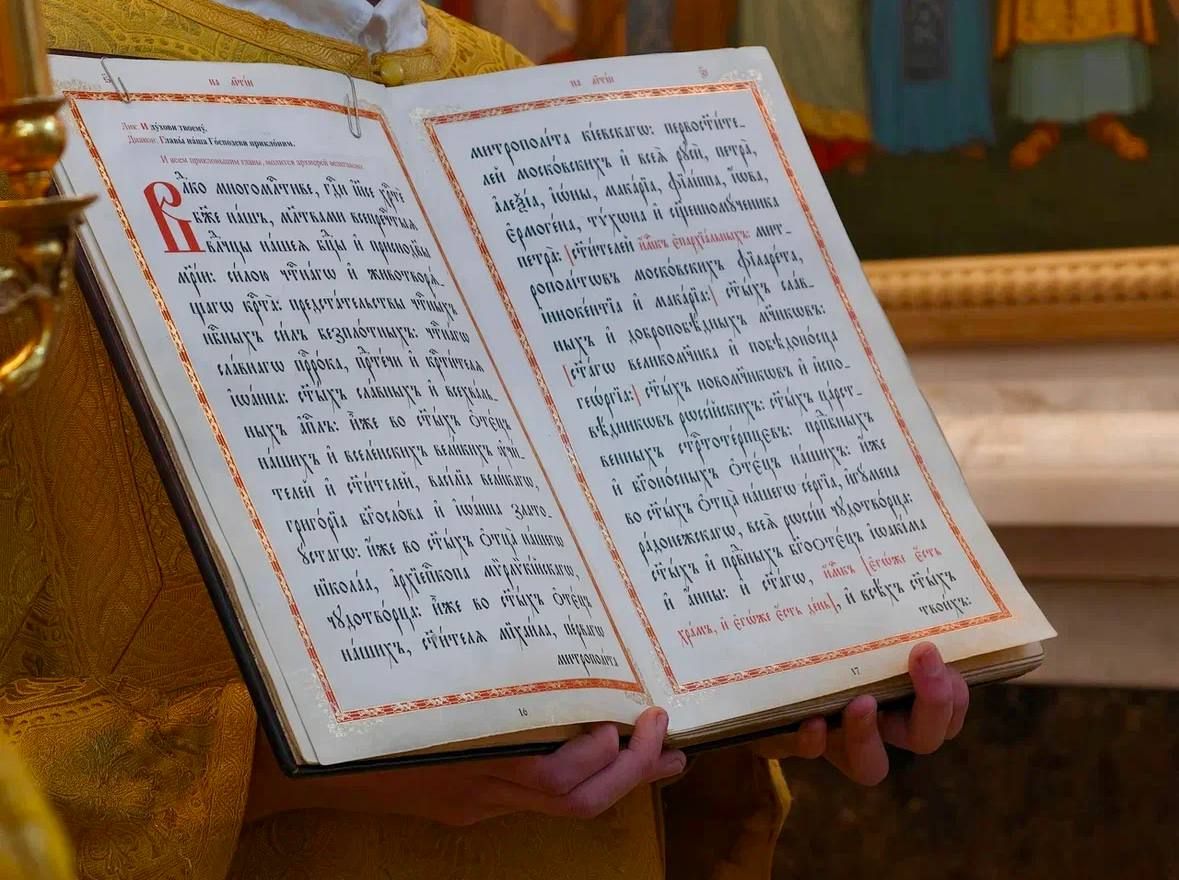 на литі́и
Лик: И ду́хови твоему́.
Диакон: Главы́ на́ша Го́сподеви прикло́ним.
И всем приклоньшим главы, молится архиерей велегласно:
Влⷣко многомлⷭ҇тиве, гдⷭ҇и і҆и҃се хрⷭ҇те
бж҃е на́шъ, мл҃твами всепречⷭ҇тыѧ
влⷣчцы на́шеѧ бцⷣы и҆ приснодв҃ы
мр҃і́и: си́лою чтⷭ҇на́гѡ и҆ животворѧ́_
щагѡ крⷭ҇та̀: предста́тельствы чтⷭ҇ны́хъ
нбⷭ҇ныхъ си́лъ безпло́тныхъ: чтⷭ҇на́гѡ
сла́внагѡ прⷪ҇ро́ка, прⷣте́чи и҆ крⷭ҇ти́телѧ
і҆ѡа́нна: ст҃ы́хъ сла́вныхъ и҆ всехва́ль_
ныхъ а҆пⷭ҇лъ: и҆̀же во ст҃ы́хъ ѻ҆тє́цъ
на́шихъ и҆ вселе́нскихъ вели́кихъ ᲂу҆чи́_
телей и҆ ст҃и́телей, васі́лїа вели́кагѡ,
григо́рїа бг҃осло́ва и҆ і҆ѡа́нна злато_
ꙋ́стагѡ: и҆́же во ст҃ы́хъ ѻ҆тца̀ на́шегѡ
нїкола́а, а҆рхїепⷭ҇копа мѷрлѷкі́йскагѡ,
чꙋдотво́рца: и҆̀же во ст҃ы́хъ ѻ҆тє́цъ
на́шихъ, ст҃и́телѧ мїхаи́ла, пе́рвагѡ
митрополі́та
16
на литі́и
митрополі́та кі́евскагѡ: первост҃и́те_
лей моско́вскихъ и҆ всеѧ̀ рꙋсі́и, петра̀,
а҆леѯі́а, і҆ѡ́ны, мака́рїа, фїлі́ппа, і҆́ѡва,
є҆рмоге́на, тѵ́хѡна и҆ сщ҃енномꙋ́ченика
петра̀: ст҃и́телей и҆́м̾къ є҆парх̾їа́льныхъ: мит_
рополі́тѡвъ моско́вскихъ фїларе́та,
і҆нноке́нтїа и҆ мака́рїа: ст҃ы́хъ сла́в_
ныхъ и҆ добропобѣ́дныхъ мч҃никѡвъ:
ст҃а́гѡ великомч҃ника и҆ побѣдоно́сца
геѡ́ргїа: ст҃ы́хъ новомч҃никѡвъ и҆ и҆спо_
вѣ́дникѡвъ рѡссі́йскихъ: ст҃ы́хъ ца́рст_
венныхъ стрⷭ҇тоте́рпцєвъ: прпⷣбныхъ
и҆ бг҃оно́сныхъ ѻ҆тє́цъ на́шихъ: и҆́же
во ст҃ы́хъ ѻ҆тца̀ на́шегѡ се́ргїа, и҆гꙋ́мена
ра́донежскагѡ, всеѧ̀ рѡссі́и чꙋдотво́рца:
ст҃ы́хъ и҆ првⷣныхъ бг҃оѻте́цъ і҆ѡакі́ма
и҆ а҆́нны: и҆ ст҃а́гѡ, и҆́м̾къ є҆гѡ́же є҆́сть
хра́мъ, и҆ є҆гѡ́же є҆́сть де́нь, и҆ всѣ́хъ ст҃ы́хъ
твои́хъ:
17